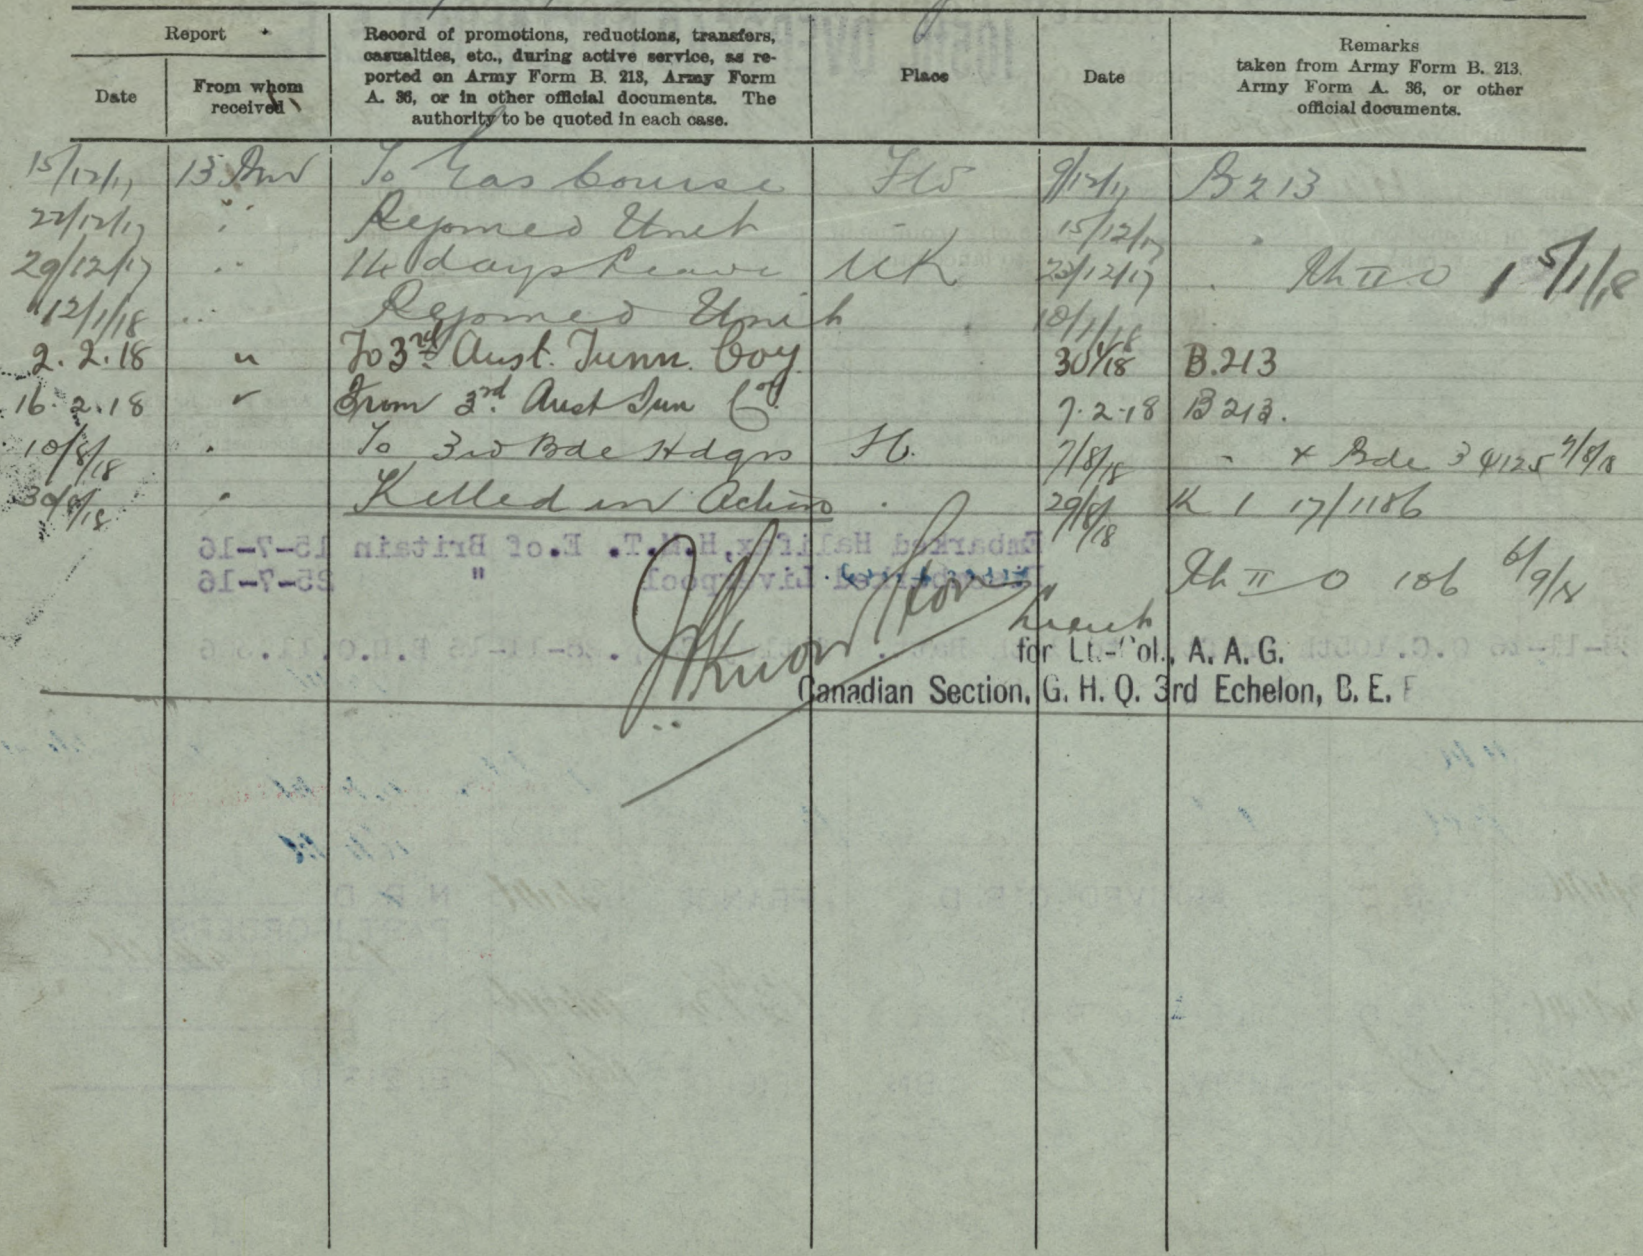 Report
Date
From whom
received
Record of promotions, reductions, transfers,
casualties, etc., during active service, as re-
ported on Army Form B. 213, Army Form
A. 36, or in other official documents. The
authority to be quoted in each case.
Place
Date
Remarks
taken from Army Form B. 213.
Army Form A. 36, or other
official documents.
15/12/17 13 To Gas Course Fld 9/12/17 B213
22/12/17 " Rejoined Unit 15/12/17
29/12/17 " 14 days Leave UK 23/12/17 II O 1 5/1/18
12/1/18 " Rejoined Unit 10/1/18
2.2.18 " To 3rd Aust. Tunn. Coy. 30/1/18 B.213
16.2.18 " From 3rd Aust Tun Co. 7.2.18 B213.
10/8/18 " To 3rd Bde Hdqrs 7/8/18 " + Bde 3 4125 7/8/18
30/8/18 " Killed in Action " 29/8/18 K 1 17/1186
Embarked Halifax,H.M.T. E.of Britain 15-7-16
Liverpool " 25-7-16
II O 106 6/9/18
Lieut
for Lt.-Col., A. A. G.
Canadian Section, G. H. Q. 3rd Echelon, B. E. F